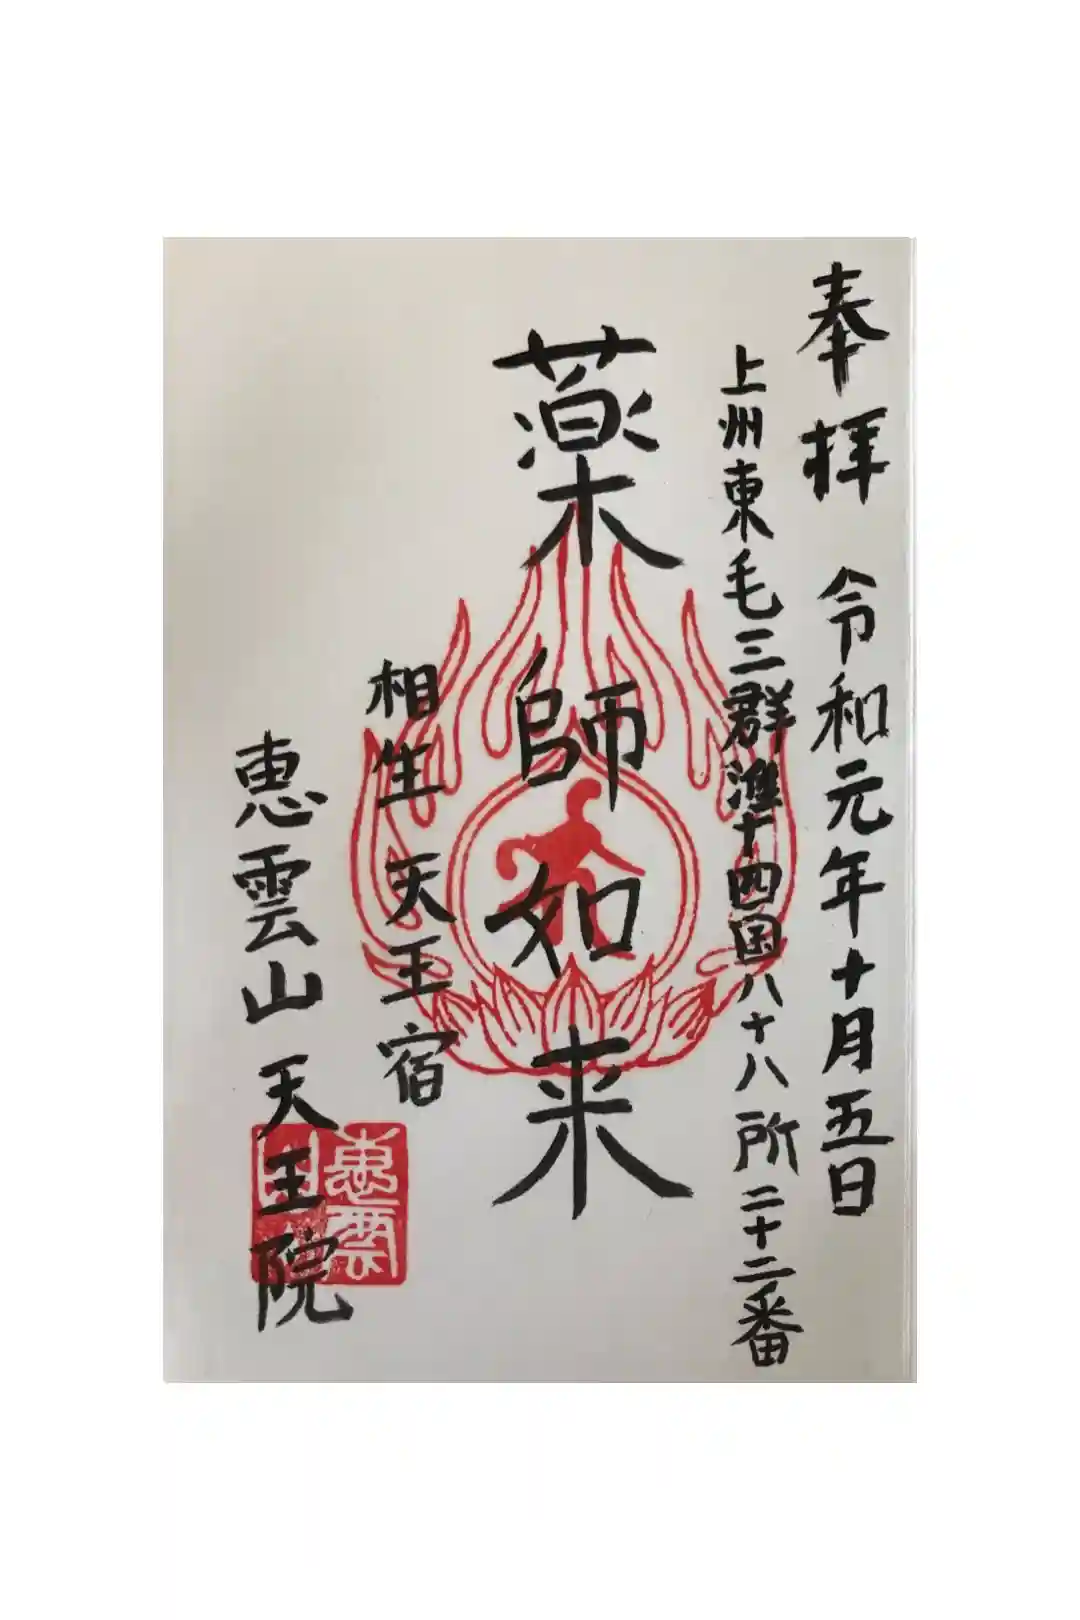 奉拝 令和元年十月五日
上州東毛三群准十四国八十八所二十二番
薬師如来
相生 天王宿
恵雲山 天王院